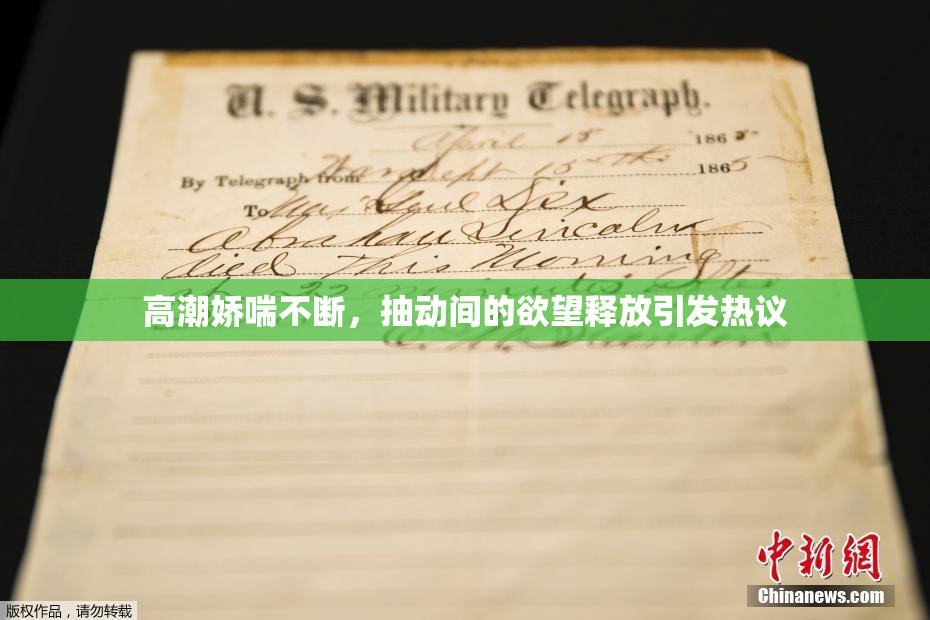 U. S. Military Telegraph.
April 15 1865
By Telegraph from War Dept 15th 1865
To Maj Genl Dix
Abraham Lincoln
died This Morning
22 minutes after
高潮娇喘不断，抽动间的欲望释放引发热议
E. M. Stanton
中新网
Chinanews.com
版权作品，请勿转载